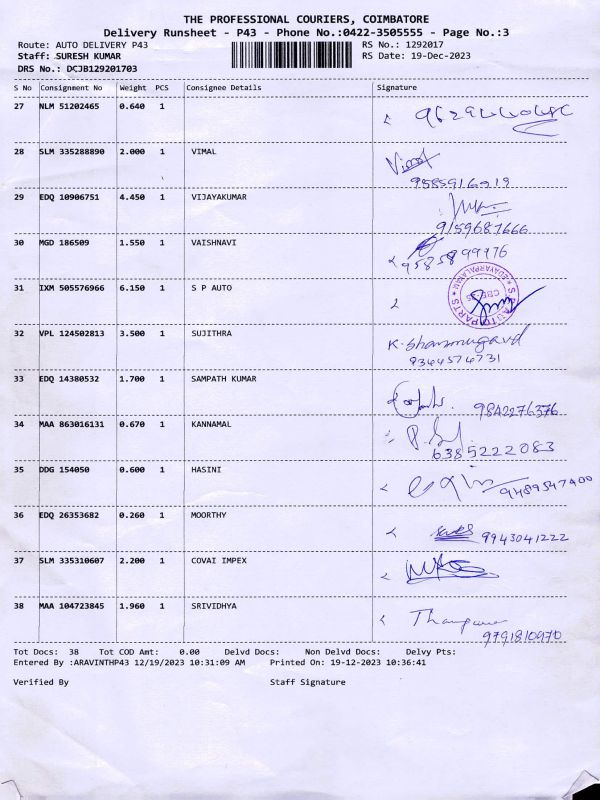 THE PROFESSIONAL COURIERS, COIMBATORE
Delivery Runsheet - P43 - Phone No.:0422-3505555 - Page No.:3
Route: AUTO DELIVERY P43 RS No.: 1292017
Staff: SURESH KUMAR RS Date: 19-Dec-2023
DRS No.: DCJB129201703
S No Consignment No Weight PCS Consignee Details Signature
27 NLM 51202465 0.640 1
28 SLM 335288890 2.000 1 VIMAL Vimal
9585916919
29 EDQ 10906751 4.450 1 VIJAYAKUMAR
9159687666
30 MGD 186509 1.550 1 VAISHNAVI
9585899776
31 IXM 505576966 6.150 1 S P AUTO
32 VPL 124502813 3.500 1 SUJITHRA K. Shanmugavel
9364574731
33 EDQ 14380532 1.700 1 SAMPATH KUMAR
9842276376
34 MAA 863016131 0.670 1 KANNAMAL
6385222083
35 DDG 154050 0.600 1 HASINI
9489547400
36 EDQ 26353682 0.260 1 MOORTHY
9943041222
37 SLM 335310607 2.200 1 COVAI IMPEX
38 MAA 104723845 1.960 1 SRIVIDHYA
9791810970
Tot Docs: 38 Tot COD Amt: 0.00 Delvd Docs: Non Delvd Docs: Delvy Pts:
Entered By :ARAVINTHP43 12/19/2023 10:31:09 AM Printed On: 19-12-2023 10:36:41
Verified By Staff Signature